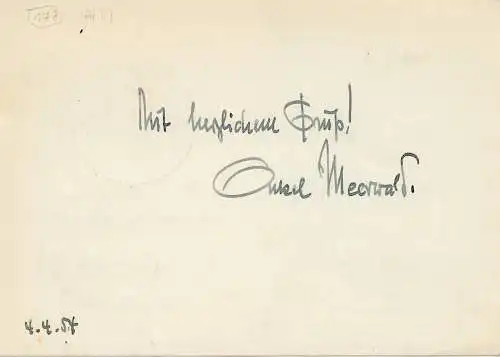 177
Mit herzlichem Gruß!
Onkel Meerwald.
4.4.57